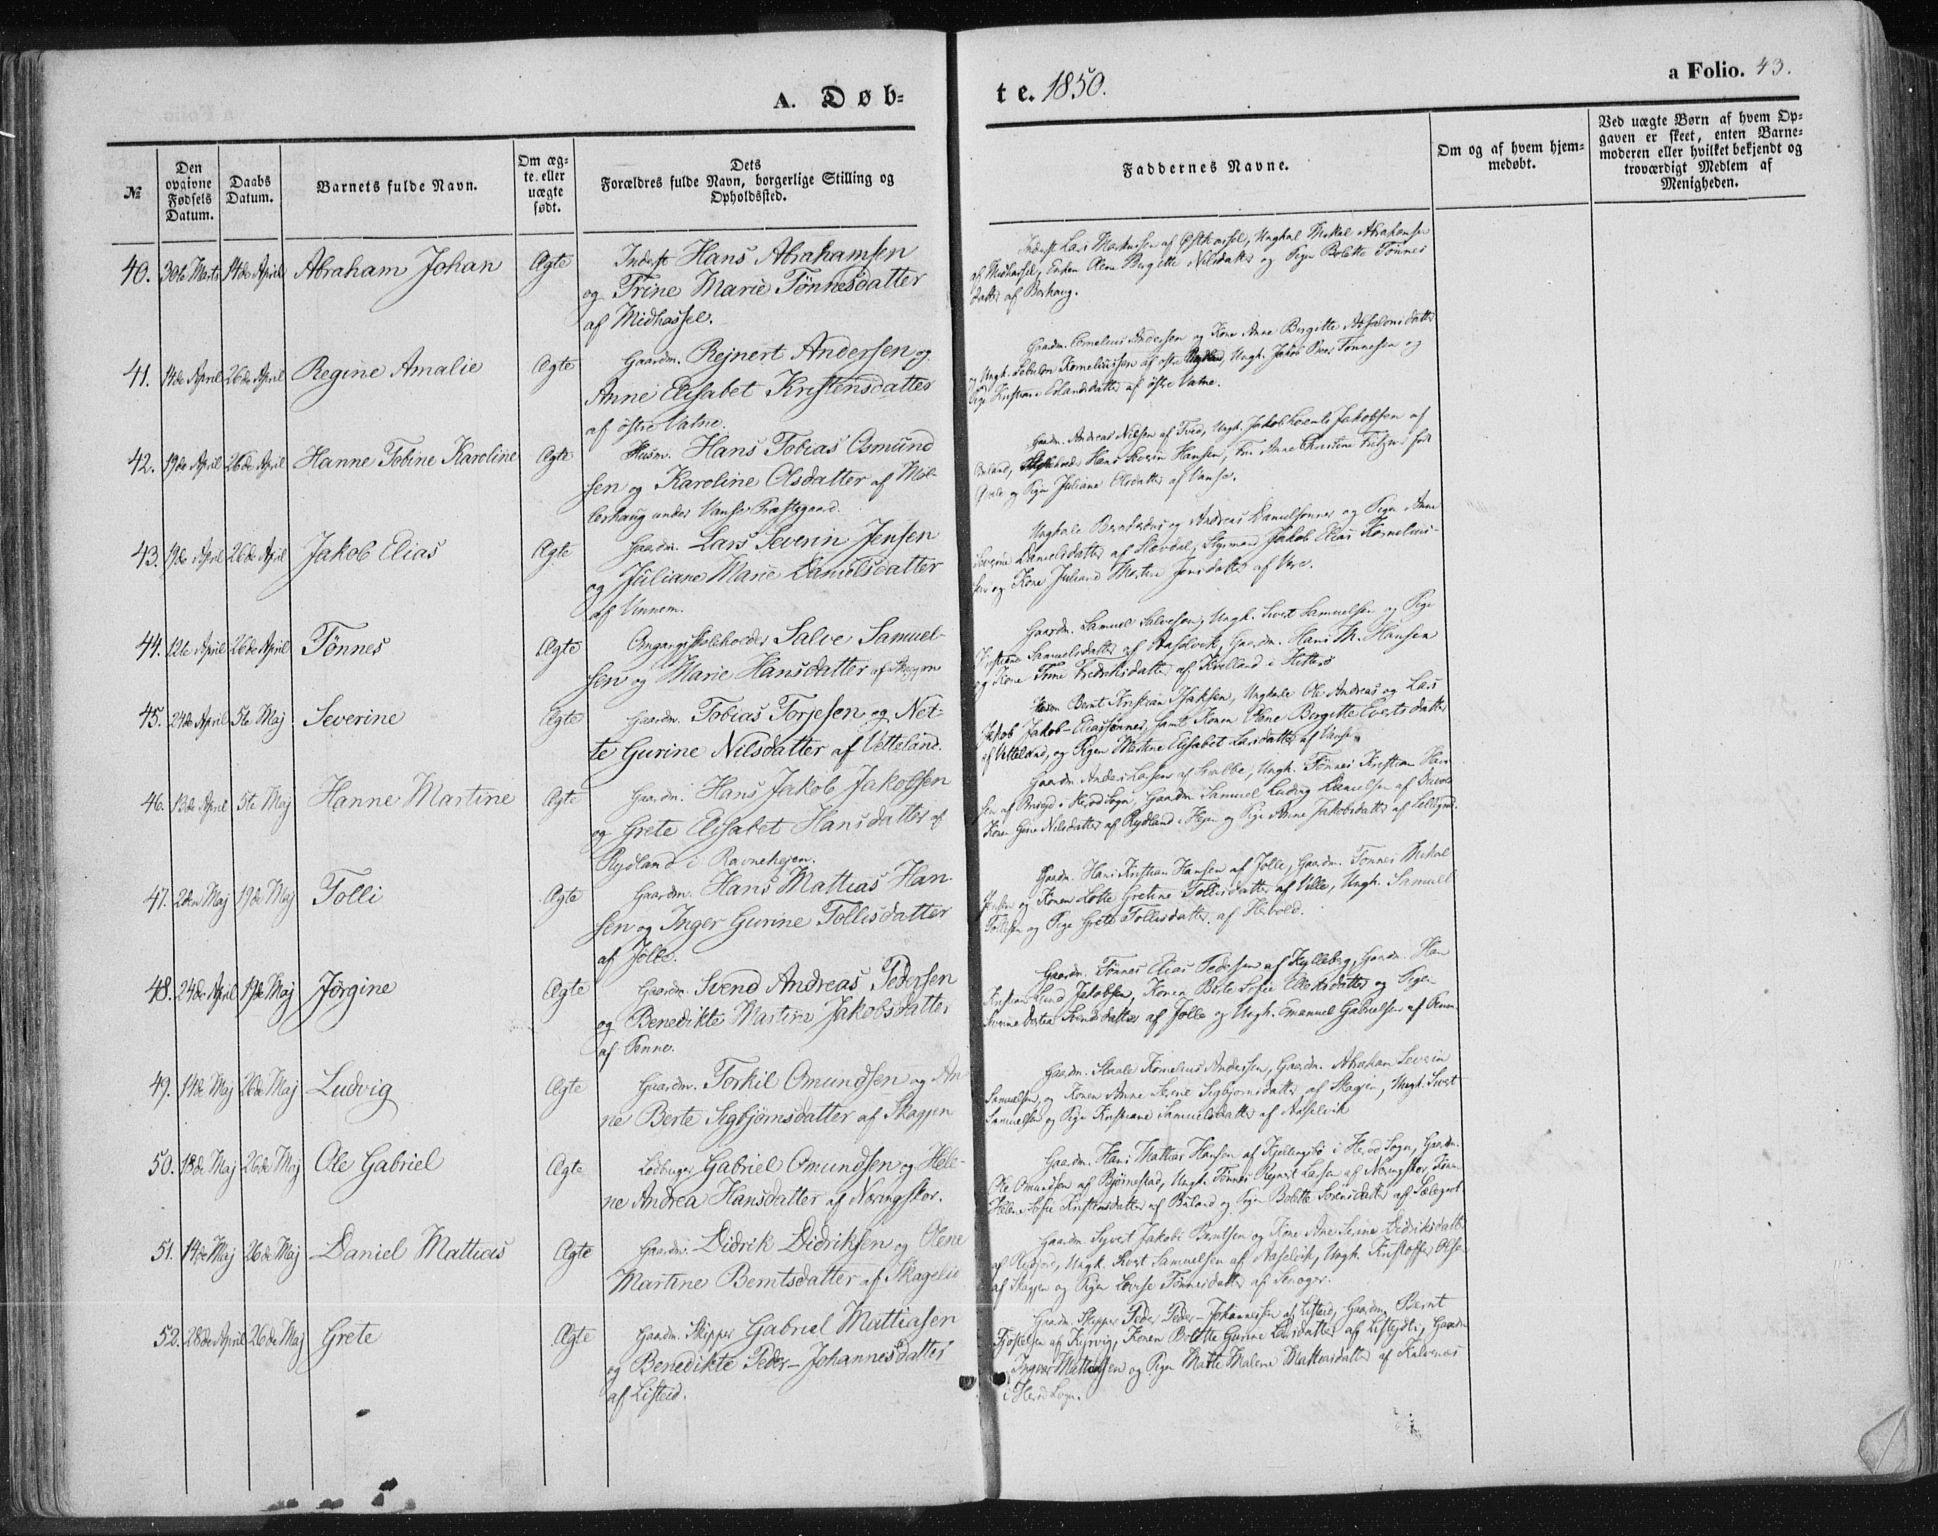 A. Døb-
te. 1850.
a Folio. 43.
№
Den opgivne Fødsels Datum.
Daabs Datum.
Barnets fulde Navn.
Om ægte eller uægte født.
Dets
Forældres fulde Navn, borgerlige Stilling og
Opholdssted.
Faddernes Navne.
Om og af hvem hjem-
medøbt.
Ved uægte Børn af hvem Op-
gaven er skeet, enten Barne-
moderen eller hvilket bekjendt og
troværdigt Medlem af
Menigheden.
40. 30te Marts 14de April Abraham Johan Ægte Inderst Hans Abrahamsen
og Trine Marie Tønnesdatter
af Midhassel.
Inderst Lars af Østhassel, Ungkal Mikal Abrahamsen
af Midhassel, Enken Olene Bergitte Nilsdatter og Pigen Bolette Tønnes
datter af Borhaug.
41. 14de April 26de April Regine Amalie Ægte Gaardm. Rejnert Andersen og
Anne Elisabet Kristensdatter
af østre Vatne.
Gaardm. Cornelius Andersen og Kone Anne Bergitte Absalonsdatter
Ungk. Korneliussen af østre Ungk. Jakob Tønnesen og
Pige Kristiane af østre Vatne.
42. 19de April 26de April Hanne Tobine Karoline Ægte Husm. Hans Tobias Osmund
sen og Karoline Olsdatter af Møl-
lerhaug under Vanse Præstegaard.
Gaardm. Andreas Nilsen af Tved, Ungk. Jakob Jakobsen af
Hans Severin Hansen, Fru Anne Christine
og Pigen Juliane Olsdatter af Vanse.
43. 19de April 26de April Jakob Elias Ægte Gaardm. Lars Severin Jensen
og Juliane Marie Danielsdatter
af Vinnem.
Ungkale og Andreas Danielsønner og Pigen Anne
Severine Danielsdatter af Stavdal, Styrmand Jakob Elias Kornelius-
sen og Kone Juliane Jensdatter af Vere.
44. 12te April 26de April Tønnes Ægte Omgangsskoleholder Salve Samuel-
sen og Marie Hansdatter af Skagen
Gaardm. Samuel Salvesen, Ungk. Sivert Samuelsen og Pige
Kristiane Samuelsdatter af Aaselvik, Gaardm. Hans M. Hansen
og Kone Trine Fredriksdatter af Kvelland i Hitterø
45. 24de April 5te Maj Severine Ægte Gaardm. Tobias Torjesen og Net-
te Gurine Nilsdatter af Vetteland.
Bernt Kristian Isaksen, Ungkale Ole Andreas og Lars
Jakob Jakob-Eliassønner samt Konen Olene Bergitte Evertsdatter
af Vetteland, og Pigen Martine Elisabet Larsdatter af Vanse
46. 13de April 5te Maj Hanne Martine Ægte Gaardm. Hans Jakob Jakobsen
og Grete Elisabet Hansdatter af
Rydland i Ravnehejen.
Gaardm. Anders Larsen af Ungk. Tønnes Kristian Han
sen af i Herad Sogn, Gaardm. Samuel Ludvig Danielsen af
Konen Gine Nilsdatter af Rydland i Hejen og Pige Anne Jakobsdatter af
47. 2den Maj 19de Maj Tolli Ægte Gaardm. Hans Mattias Han
sen og Inger Gurine Tollisdatter
af Jølle.
Gaardm. Hans Kristian Hansen af Jølle, Gaardm. Tønnes Mikal
Jensen og Konen Lotte Gretine Tollisdatter af Ungk. Samuel
Tollisen og Pige Grete Tollisdatter af Hervold.
48. 24de April 19de Maj Jørgine Ægte Gaardm. Svend Andreas Pedersen
og Benedikte Martine Jakobsdatter
af Penne.
Gaardm. Tønnes Elias Pedersen af Gaardm. Han
Kristian Lund Jakobsen, Konen Berte Sofie og Pigen
Severine Svendsdatter af Jølle og Ungk. Emanuel Gabrielsen af Penne
49. 14de Maj 26de Maj Ludvig Ægte Gaardm. Torkil Omundsen og An
ne Berte Sigbjørnsdatter af Skagen
Gaardm. Staale Kornelius Andersen, Gaardm. Abraham Severin
Samuelsen, og Konen Anne Serine Sigbjørnsdatter af Skagen, Ungk. Sivert
Samuelsen og Pige Kristiane Samuelsdatter af Aaselvik
50. 18de Maj 26de Maj Ole Gabriel Ægte Ledbruger Gabriel Omundsen og Hele-
ne Andrea Hansdatter af Noringskor.
Gaardm. Hans Mattias Hansen af Kjellingsbø i Herad Sogn, Gaardm.
Ole Omundsen af Bjørnestad, Ungk. Tønnes Larsen af Noringskor, Konen
Helene Sofie Kristensdatter af Buland og Pigen Bolette Sørensdatter af
51. 14de Maj 26de Maj Daniel Mattias Ægte Gaardm. Didrik Didriksen og Olene
Martine Berntsdatter af Skagelie
Gaardm. Syvert Jakob Berntsen og Kone Ane Serine Didriksdatter
af Ungk. Sivert Samuelsen af Aaselvik, Ungk. Kristoffer Olsen
af Skagen og Pigen Lovise Tønnesdatter af
52. 28de April 26de Maj Grete Ægte Gaardm. Skipper Gabriel Mattiasen
og Benedikte Peder-Johannesdatter
af Listeid.
Gaardm. Skipper Peder Peder-Johannessen af Listeid, Gaardm. Bernt
af Konen Bolette Gurine Larsdatter af Listeid, Gaardm.
Ingvar Mattiassen og Pigen Malene Mattiasdatter af
i Herad Sogn.